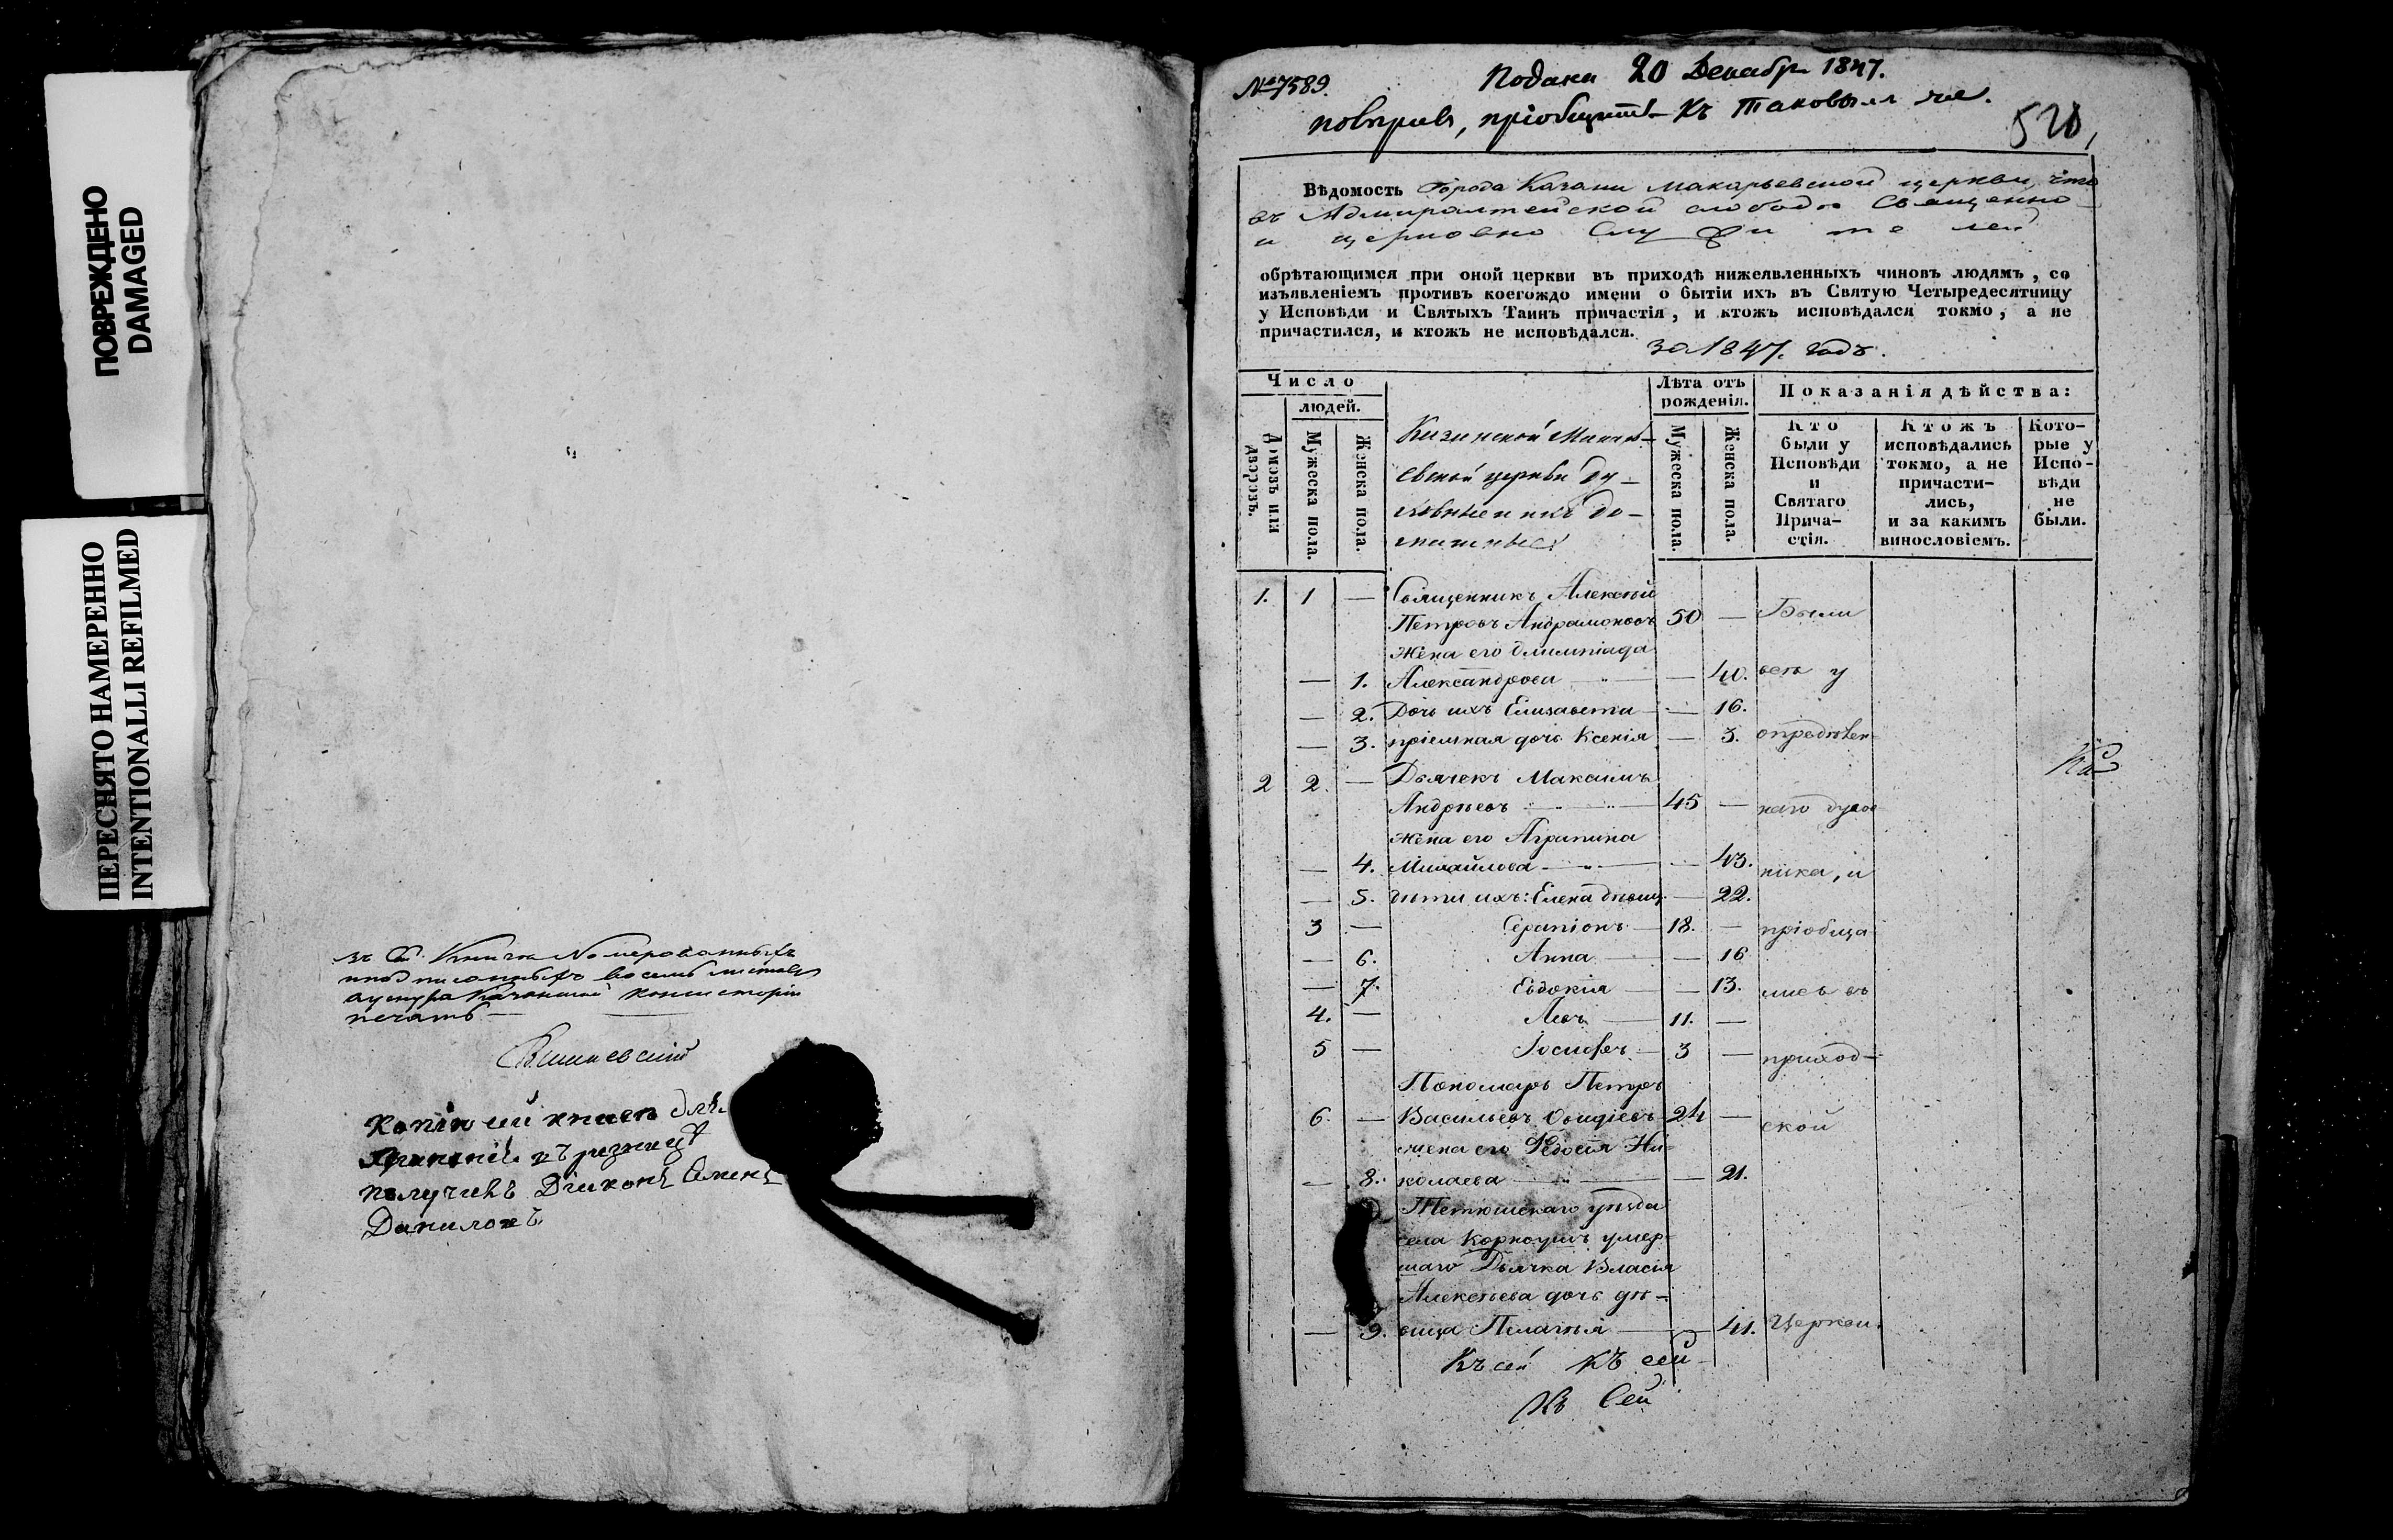 ПОВРЕЖДЕНО
DAMAGED
ПЕРЕСНЯТО НАМЕРЕННО
INTENTIONALLI REFILMED
въ Книги Номерованныхъ
восемь листовъ
Казанской консисторіи
печать
Вишневский
Копію сей книги для
получилъ Діаконъ Семенъ
Даниловъ
№ 7589.
Подана 20 Декабря 1847.
повѣривъ, пріобщить къ таковымъ же.
520
Вѣдомость Города Казани Макарьевской церкви, что
въ Адмиралтейской слободѣ Священно
и церковно служителей
обрѣтающимся при оной церкви въ приходѣ нижеявленныхъ чиновъ людямъ, со
изъявленіемъ противъ коегождо имени о бытіи ихъ въ Святую Четыредесятницу
у Исповѣди и Святыхъ Таинъ причастія, и ктожъ исповѣдался токмо, а не
причастился, и ктожъ не исповѣдался.
за 1847. годъ.
Число
людей.
Домовъ или дворовъ.
Мужеска пола.
Женска пола.
Казанской Макарь-
евской церкви ду-
ховные и ихъ до-
машные
Лѣта отъ
рожденія.
Мужеска пола.
Женска пола.
Показанія дѣйства:
Кто
были у
Исповѣди
и
Святаго
Прича-
стія.
Ктожъ
исповѣдались
токмо, а не
причасти-
лись,
и за какимъ
винословіемъ.
Кото-
рые у
Испо-
вѣди
не
были.
1. 1 — Священникъ Алексѣй
Петровъ Андрамоновъ 50 — Были
Жена его Олимпіада
— 1. Александрова — 40. всѣ у
— 2. Дочь ихъ Елизавета — 16.
— 3. пріемная дочь Ксенія — 3. опредѣлен-
2 2. — Дьячекъ Максимъ
Андрѣевъ 45 — наго духов
Жена его Агрипина
— 4. Михайлова — 43. ника, и
— 5. дѣти ихъ: Елена дѣвица — 22.
3 — Серапіонъ 18. — пріобща
— 6. Анна — 16
— 7. Евдокія — 13. лись въ
4. — Левъ 11. —
5 — Іосифъ 3 — приход-
Пономарь Петръ
6. — Васильевъ Овидіевъ 24 — ской
жена его Федосія Ни-
— 8. колаева — 21.
Тетюшскаго уѣзда
села Корноухъ умер-
шаго Дьячка Власія
Алексѣева дочь дѣ-
— 9. вица Пелагія — 41. Церкви.
Къ сей къ сей
Къ Сей
Ка